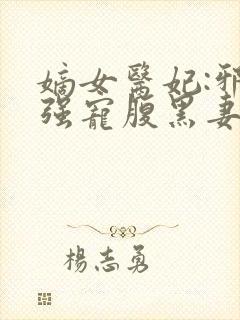 嫡女醫妃:邪
强寵腹黑妻
楊志勇